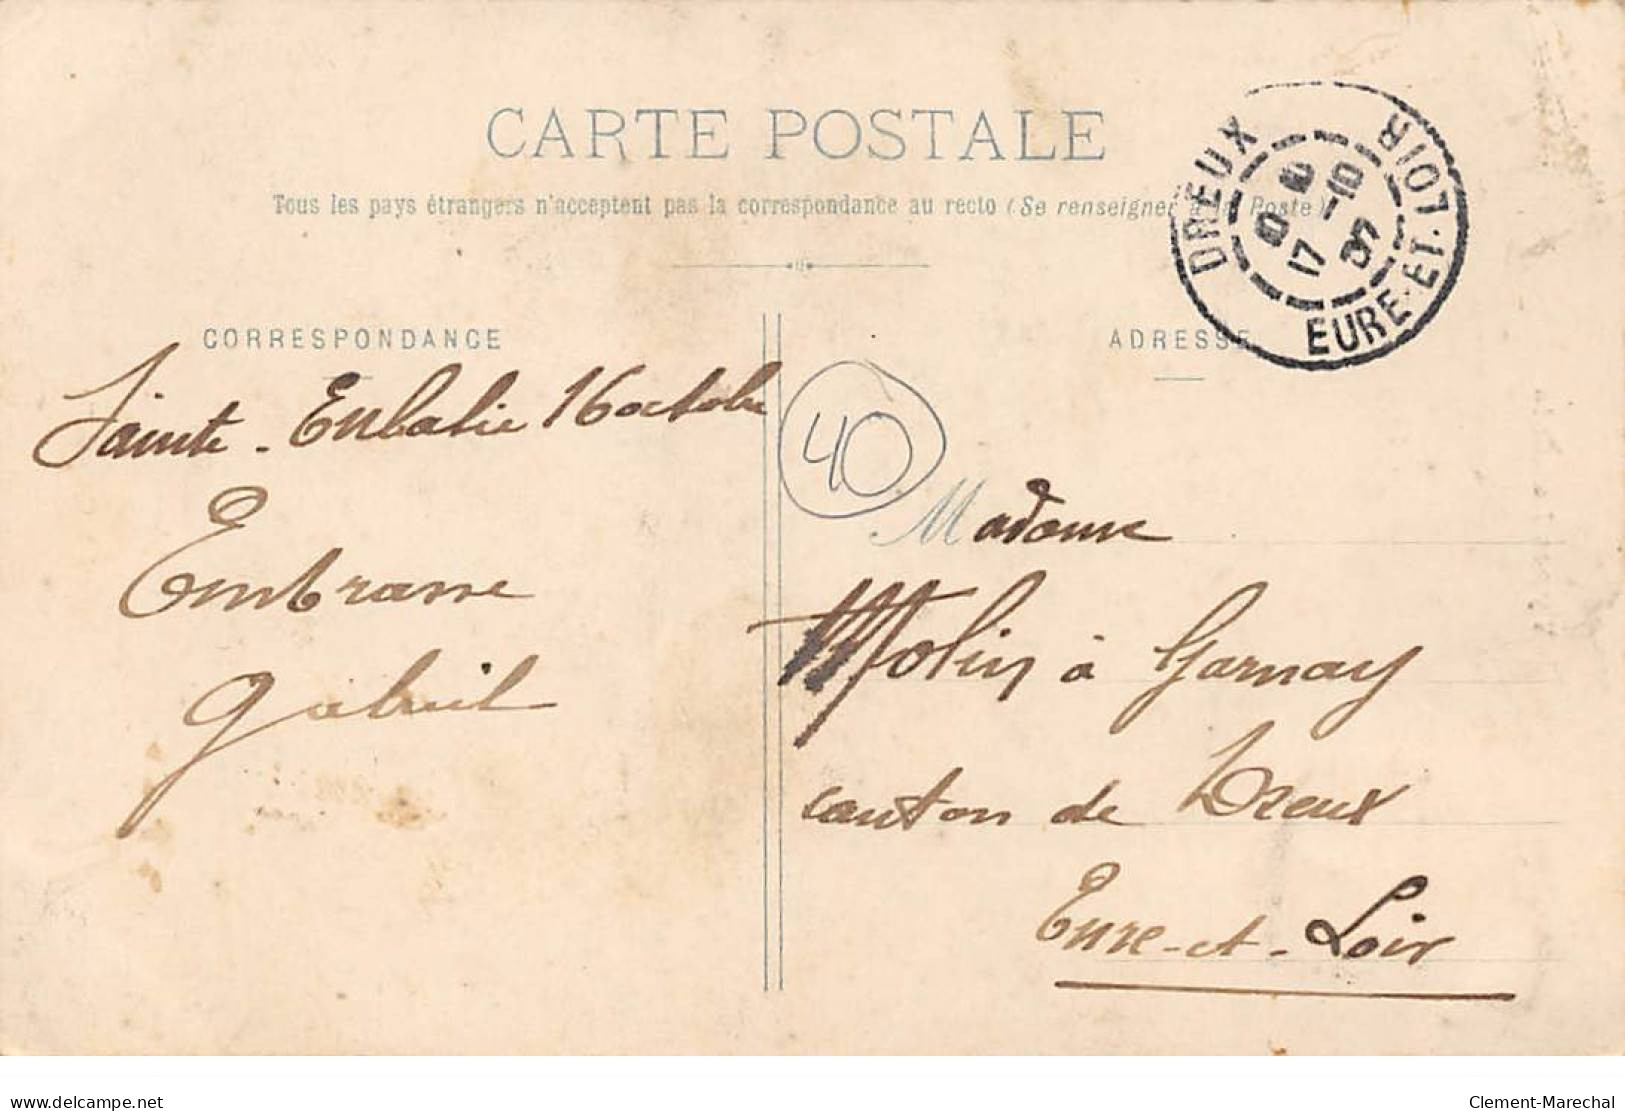 CARTE POSTALE
Tous les pays étrangers n'acceptent pas la correspondance au recto (Se renseigner à la Poste)
DREUX
17 -10
EURE-ET-LOIR
CORRESPONDANCE
ADRESSE
Sainte-Eulalie 16 octobre
40
Embrasse
Gabriel
Madame
Molin à Garnay
canton de Dreux
Eure-et-Loir
delcampe.net
Clement-Marechal